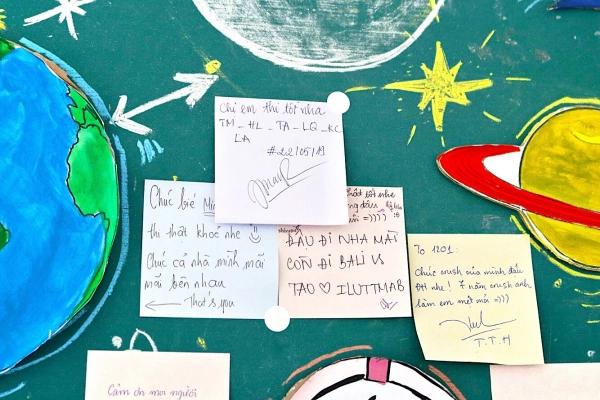 Chị em thi tốt nha
TM - HL - TA - LQ - KC
LA
#22/05/19
Chúc bié
thi thật khoẻ nhé
Chúc cả nhà mình mãi
mãi bên nhau
← That's you
thật tốt nhe
=))))
ĐẬU ĐI NHA MẬT
CÒN ĐI BALI VS
TAO ♡ ILUTTMAB
To 1201:
Chúc crush của mình đậu
ĐH nhe! 7 năm crush anh
làm em mệt mỏi =)))
T.T.H
Cảm ơn mọi người